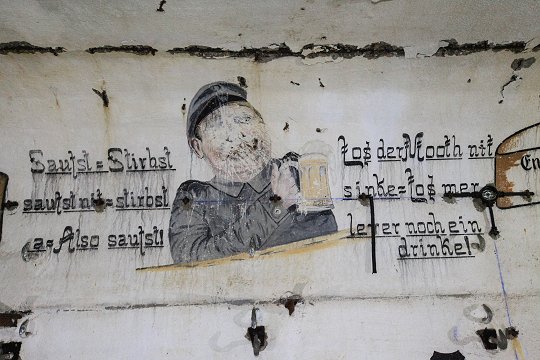 Saufst=Stirbst
saufst nit=stirbst
a=Also saufst!
Los der Mooth nit
sinke=Los mer
lerer noch ein
drinke!
En